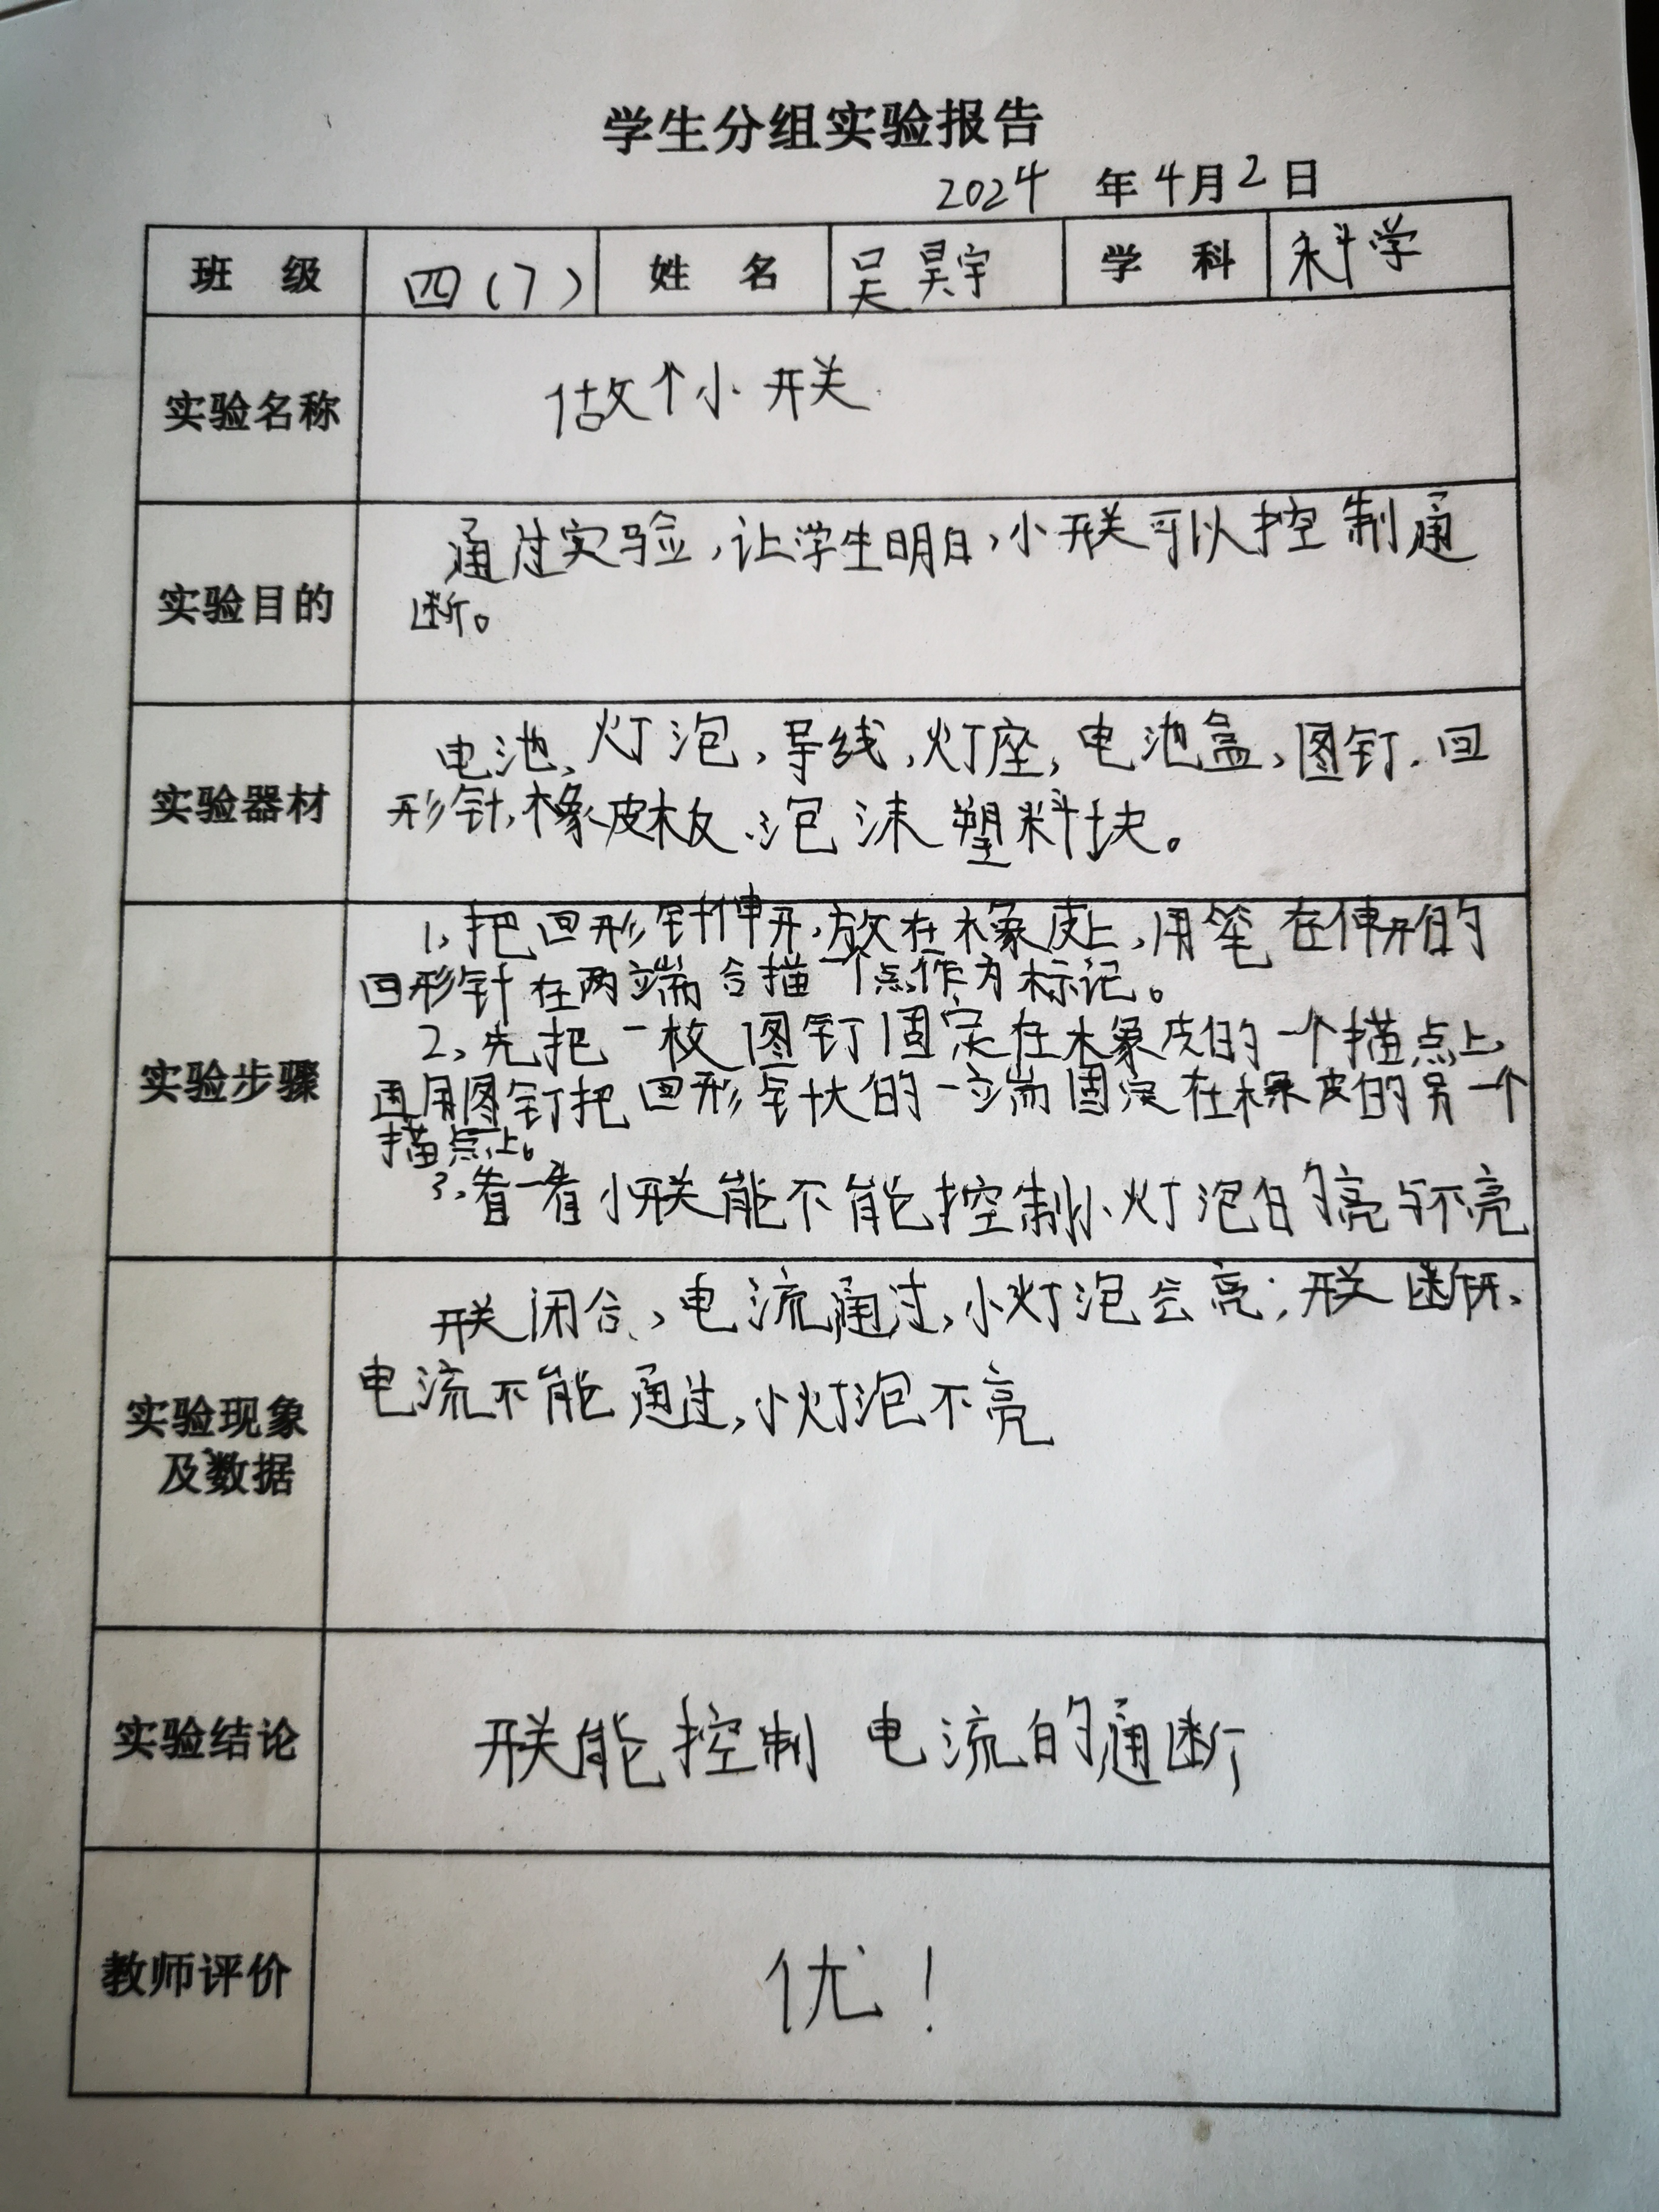 学生分组实验报告
2024 年 4月2日
班 级 四(7) 姓 名 吴昊宇 学 科 科学
实验名称 做个小开关
实验目的 通过实验,让学生明白,小开关可以控制通
断。
实验器材 电池、灯泡,导线,灯座,电池盒,图钉.回
形针,橡皮板、泡沫塑料块。
实验步骤 1、把回形针伸开,放在橡皮上,用笔在伸开的
回形针在两端各描一个点作为标记。
2、先把一枚图钉固定在橡皮的一个描点上,
再用图钉把回形针大的一端固定在橡皮的另一个
描点上。
3、看一看小开关能不能控制小灯泡的亮与不亮
实验现象
及数据
开关闭合、,电流通过,小灯泡会亮;开关断开、
电流不能通过,小灯泡不亮
实验结论 开关能控制电流的通断
教师评价 优!